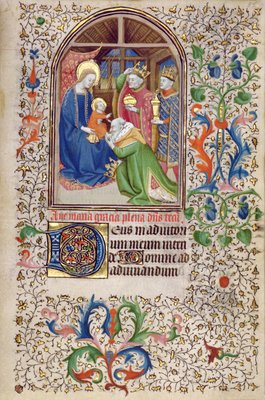 Aue maria gracia plena dns tecū
Deus in adiutori
um meum inten
de Domine ad
adiuuandum